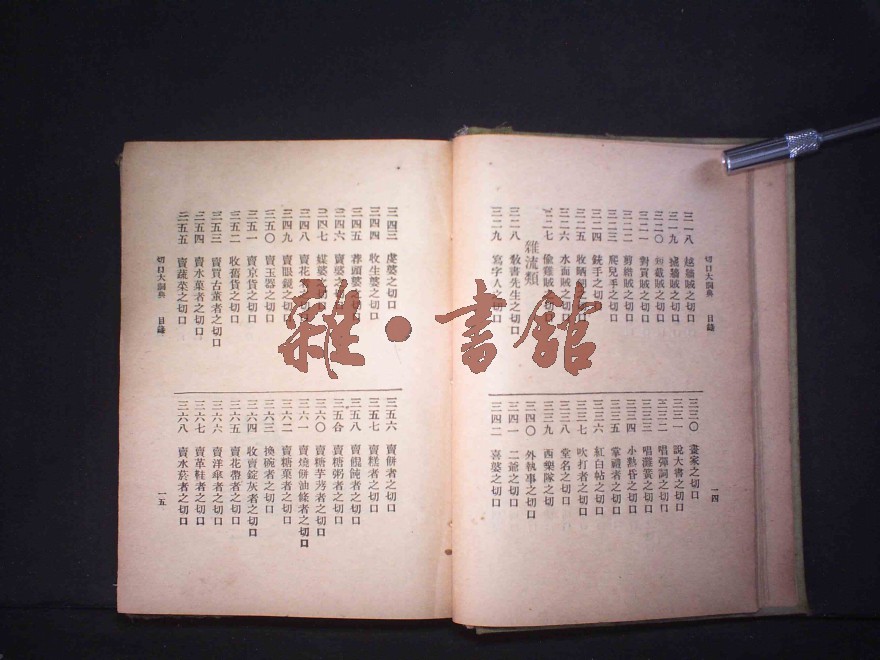 切口大詞典 目錄
三一八 越牆賊之切口
三一九 掘牆賊之切口
三二〇 短截賊之切口
三二一 對買賊之切口
三二二 剪綹賊之切口
三二三 爬兒手之切口
三二四 銃手之切口
三二五 收晒朗之切口
三二六 水面賊之切口
三二七 偸雞賊之切口
雜流類
三二八 敎書先生之切口
三二九 寫字人之切口
三三〇 畫家之切口
三三一 說大書之切口
三三二 唱彈詞之切口
三三三 唱灘簧之切口
三三四 小熱昏之切口
三三五 掌禮者之切口
三三六 紅白帖之切口
三三七 吹打者之切口
三三八 堂名之切口
三三九 西樂隊之切
三四〇 外執事之切口
三四一 二爺之切口
三四二 喜婆之切口
一四
三四三 虔婆之切口
三四四 收生婆之切口
三四五 薦頭婆之切口
三四六 賣婆之切口
三四七 媒婆之切口
三四八 賣花之切口
三四九 賣眼鏡之切口
三五〇 賣玉器之切口
三五一 賣京貨之切口
三五二 收舊貨之切口
三五三 賣買古董者之切口
三五四 賣水菓者之切口
三五五 賣蔬菜之切口
切口大詞典 目錄
三五六 賣餅者之切口
三五七 賣糕者之切口
三五八 賣餛飩者之切口
三五合 賣糖粥者之切口
三六〇 賣糖芋艿者之切口
三六一 賣燒餅油條者之切口
三六二 賣糖菓者之切口
三六三 換碗者之切口
三六四 收賣錠灰者之切口
三六五 賣花帶者之切口
三六六 賣洋傘者之切口
三六七 賣革鞋者之切口
三六八 賣水菸者之切口
一五
雜·書館